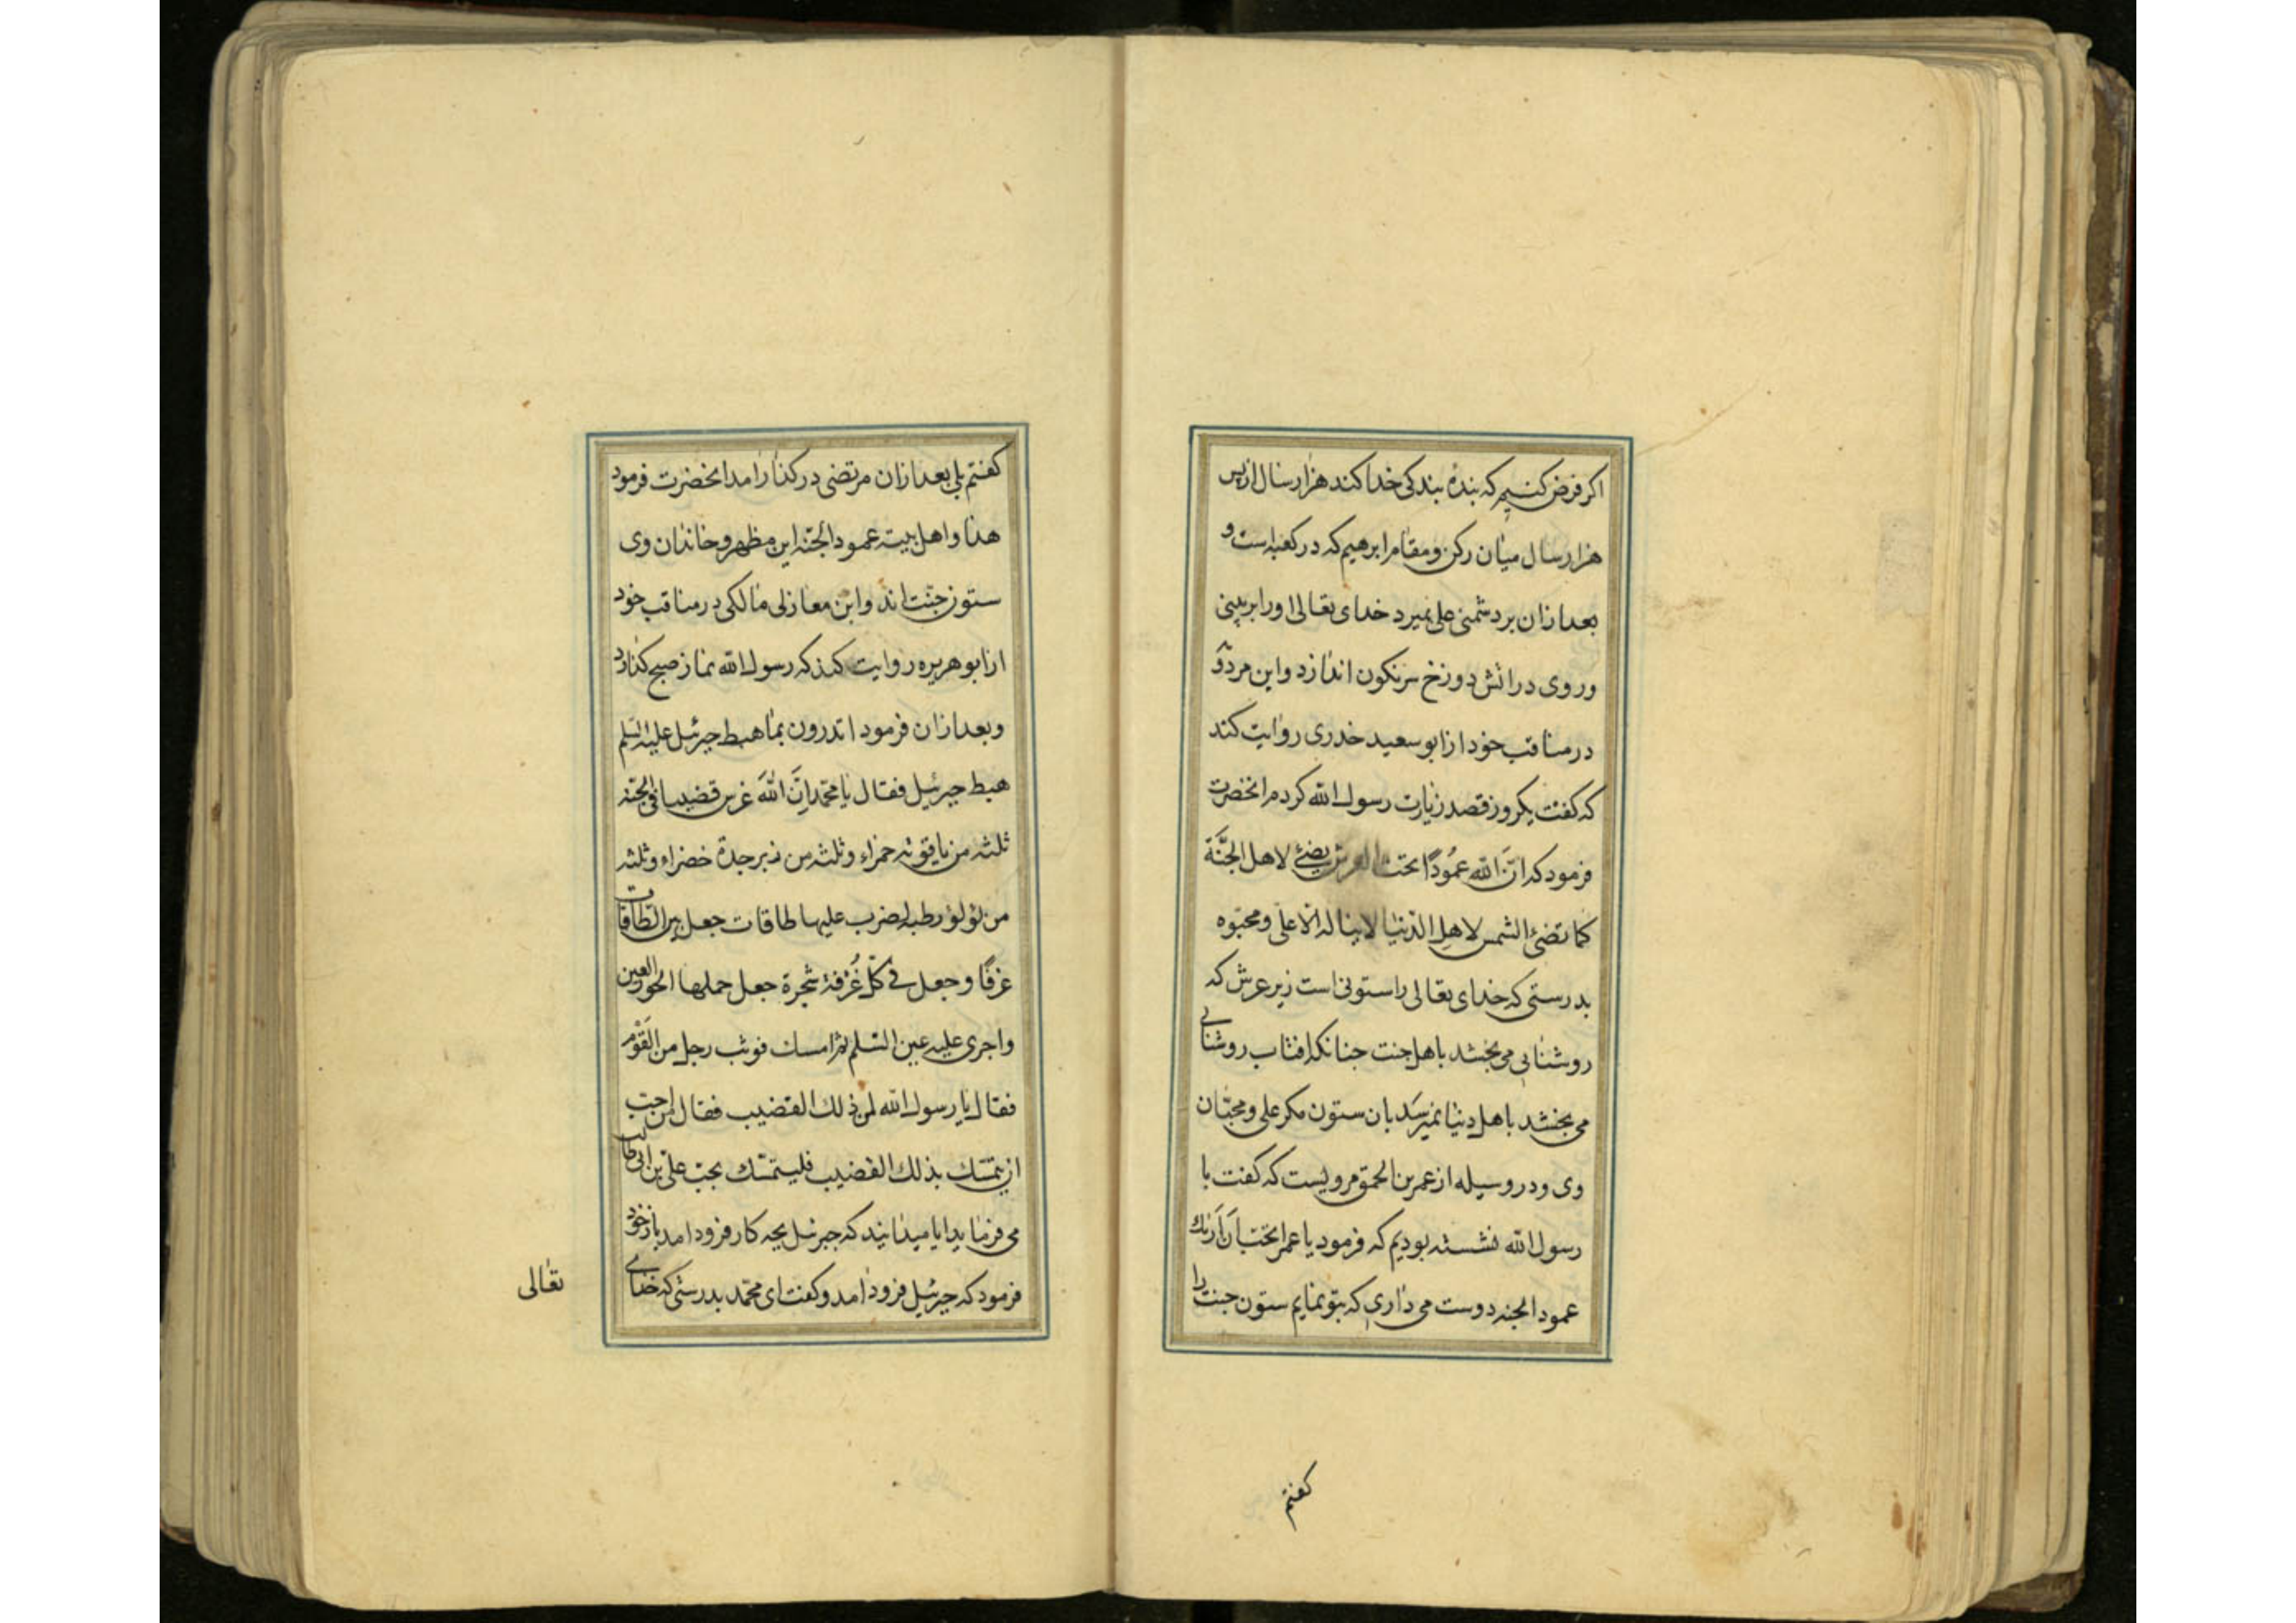 اکر فرض کنیم که بندهٔ بندکی خدا کند هزار سال از پس
هزار سال میان رکن و مقام ابرهیم که در کعبه است و
بعد ازان بر دشمنی علی بمیرد خدای تعالی اورا بر بینی
و روی در اتش دوزخ سرنکون اندازد و این مردو
در مناقب خود از ابو سعید خدری روایت کند
که کفت یکروز قصد زیارت رسول الله کردم انحضرت
فرمود که انّ الله عمُودًا تحت العرش یضئ لاهل الجنَّة
کما تضئ الشمس لاهل الدّنیا لا یناله الّا علی و محبّوه
بدرستی که خدای تعالی را ستونی است زیر عرش که
روشنایی می بخشد باهل جنت جنانکه افتاب روشنایی
می بخشد باهل دنیا نمیرسد بان ستون مکر علی و محبّان
وی و در وسیله از عمر بن الحمق مرویست که کفت با
رسول الله نشسته بودیم که فرمود یا عمر اتحتب اَن اَرَیك
عمود الجنه دوست می داری که بتو نمایم ستون جنت را
کفتم
کفتم بلی بعد ازان مرتضی در کنار امد انحضرت فرمود
هذا و اهل بیته عمود الجنه این مظهر و خاندان وی
ستون جنّت اند و ابن مغازلی مالکی در مناقب خود
از ابو هریره روایت کند که رسول الله نماز صبح کذارد
و بعد ازان فرمود اتدرون بما هبط جبرئیل علیه السلم
هبط جبرئیل فقال یا محمّد اِنَّ اللهَ غرس قضیبا فی الجنه
ثلثه من یاقوته حمراء و ثلثه من زبرجدة خضراء و ثلثه
من لؤلؤ رطبه ضرب علیها طاقات جعل بین الطاقات
غرفًا و جعل فی کلّ غُرفة شجرة جعل حملها الحور العین
و اجری علیه عین السّلم ثم امسك فوثب رجل من القَوْم
فقال یا رسول الله لمن ذلك القضیب فقال من احب
ان یتمسّك بذلك القضیب فلیتمسّك بحب علیّ بن ابی طالب
می فرماید ایا میدانید که جبرئیل بچه کار فرود امد باز خود
فرمود که جبرئیل فرود امد و کفت ای محمّد بدرستی که خدای
تعالی